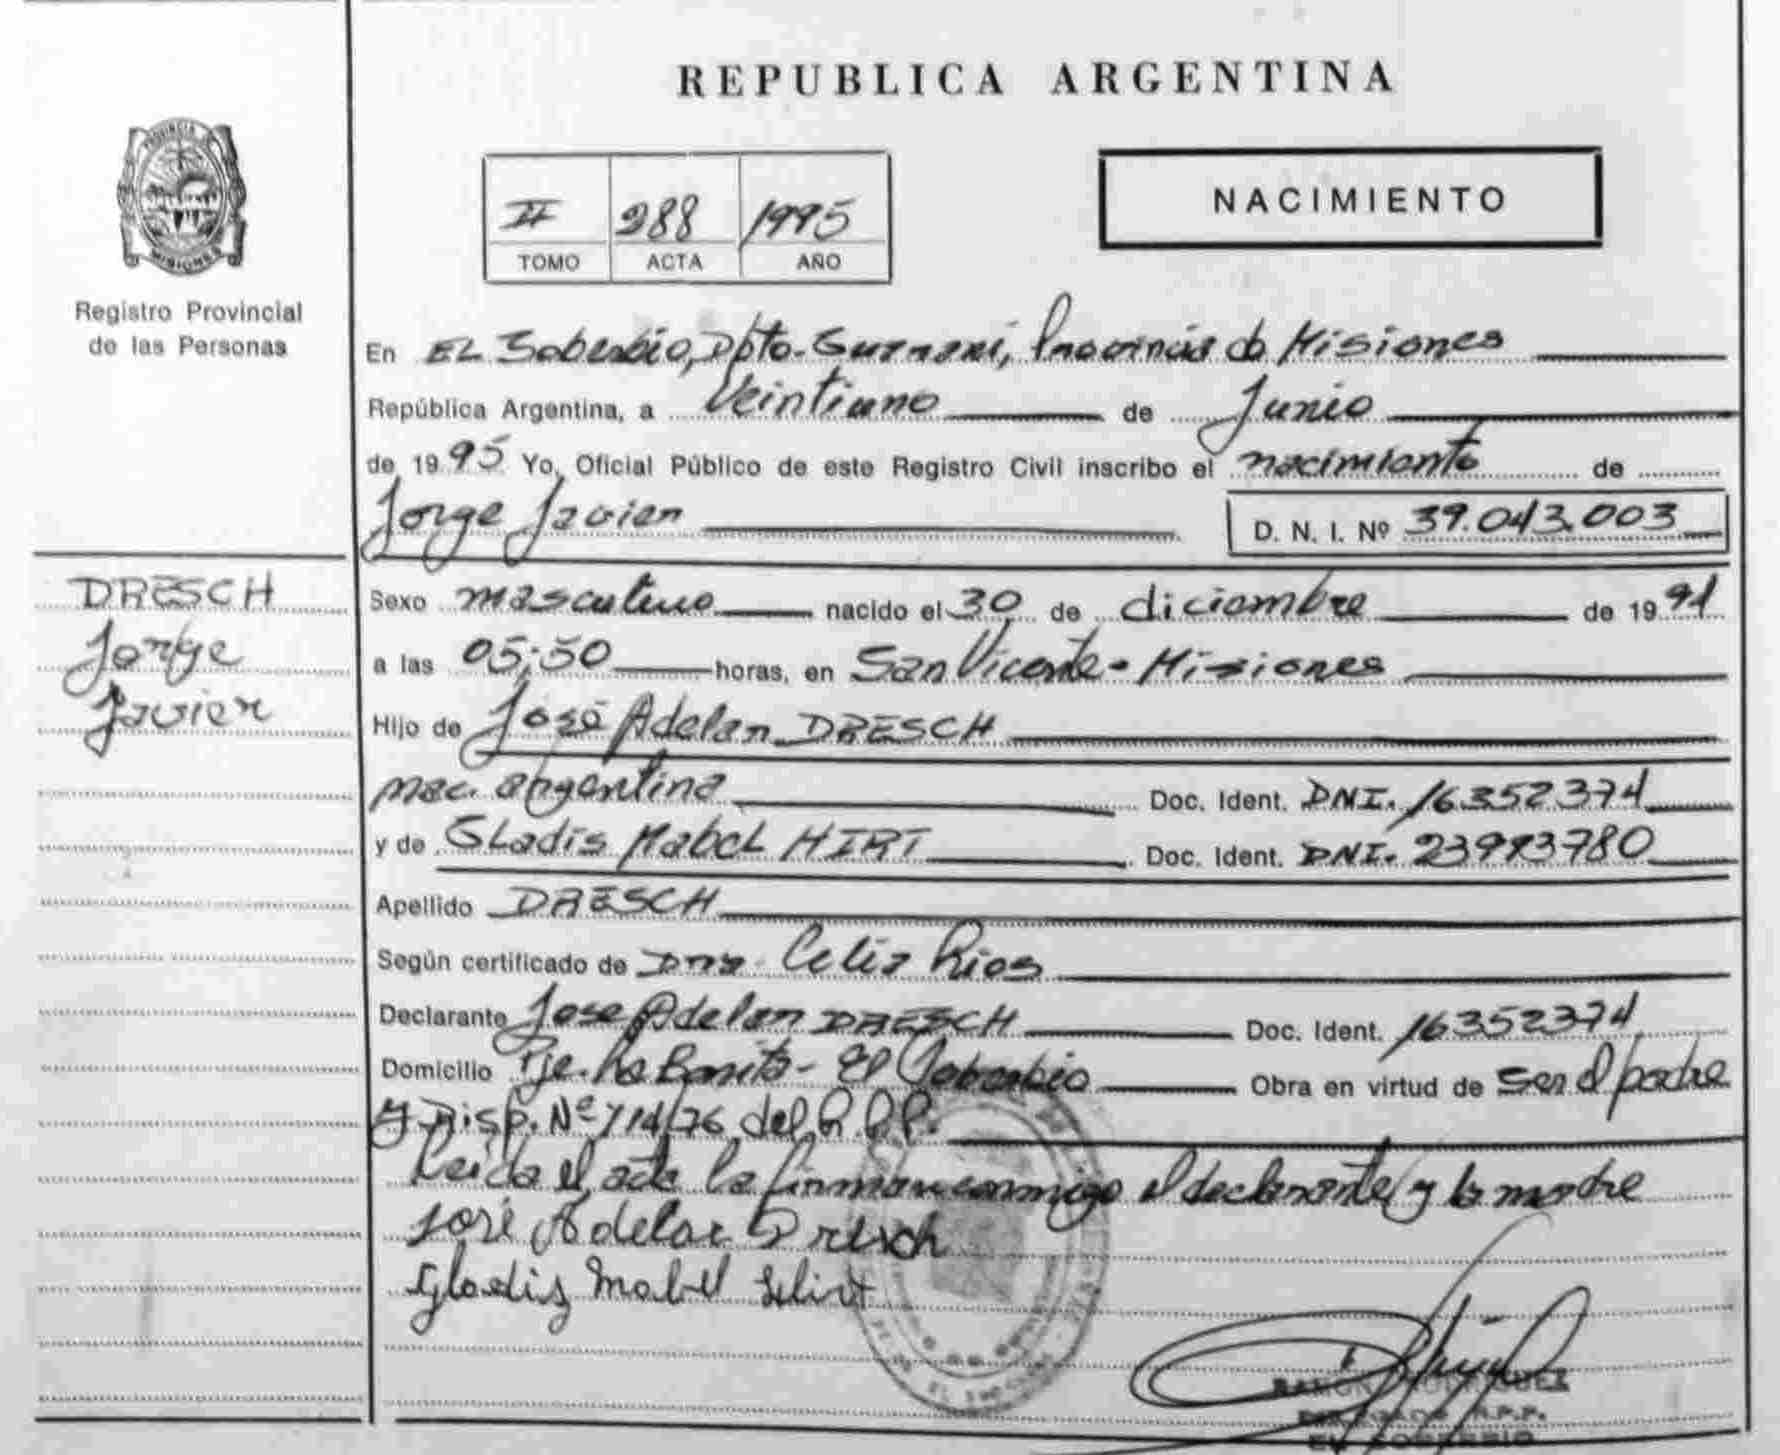 REPUBLICA ARGENTINA
PROVINCIA DE
MISIONES
Registro Provincial
de las Personas
II 288 1995
TOMO ACTA AÑO
NACIMIENTO
En EL Soberbio, Dpto. Guarani, Provincia de Misiones
República Argentina, a Veintiuno de Junio
de 1995 Yo, Oficial Público de este Registro Civil inscribo el nacimiento de
Jorge Javier
D. N. I. Nº 39.043.003
DRESCH
Jorge
Javier
Sexo masculino nacido el 30 de diciembre de 1991
a las 05:50 horas, en San Vicente - Misiones
Hijo de José Adelar DRESCH
nac. argentina Doc. Ident. DNI. 16352374
y de Gladis Mabel HIRT Doc. Ident. DNI. 23993780
Apellido DRESCH
Según certificado de Celia Rios
Declarante Jose Adelar DRESCH Doc. Ident. 16352374
Domicilio Pje. La Bonita - El Soberbio Obra en virtud de ser el padre
y Disp. Nº 114/76 del R.P.P.
Leída el acta la firman conmigo el declarante y la madre
José Adelar Dresch
Gladis Mabel Hirt
RAMON RODRIGUEZ
DELEGADO R.P.P.
EL SOBERBIO